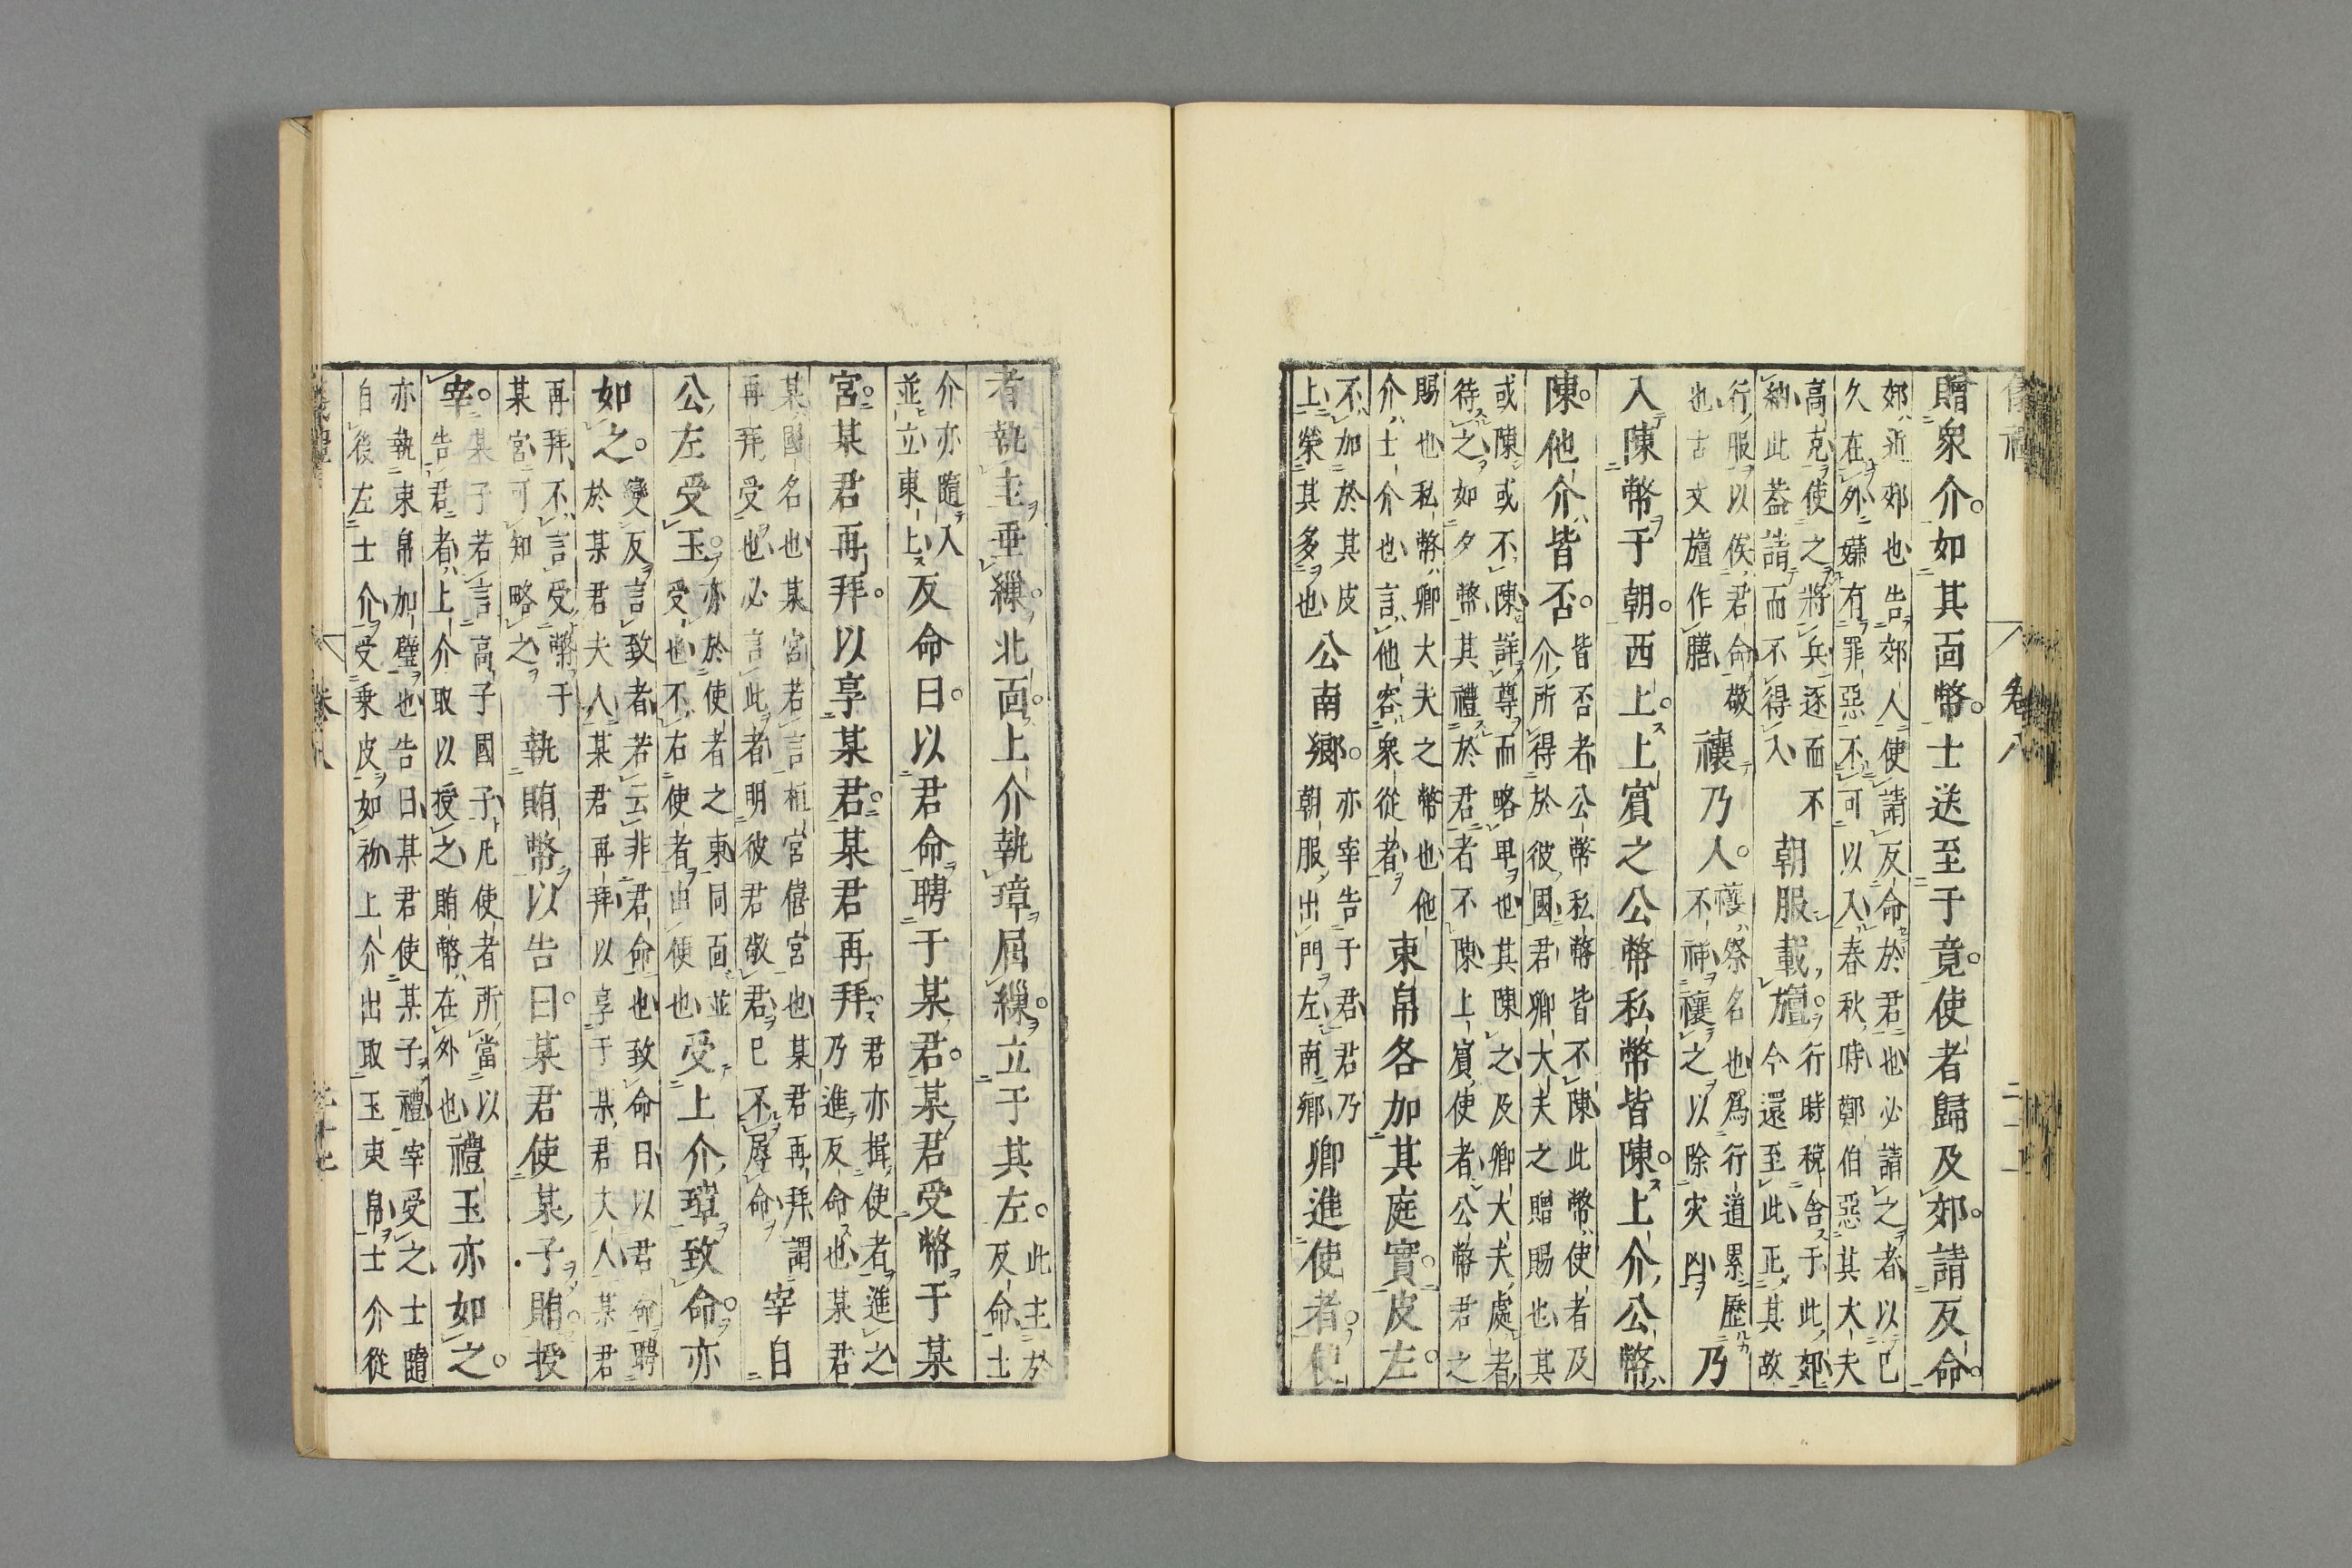 贈衆介如其面幣士送至于竟使者歸及郊請反命
郊近郊也告郊人使請反命於君也必請之者以已
久在外嫌有罪惡不可以入春秋時鄭伯惡其大夫
高克使之將兵逐而不
納此蓋請而不得入
朝服載旜
行時稅舍于此郊
今還至此正其故
行服以俟君命敬
也古文旜作膳
禳乃入
禳祭名也爲行道累歷
不祥禳之以除灾凶
乃
入陳幣于朝西上上賓之公幣私幣皆陳上介公幣
陳他介皆否
皆否者公幣私幣皆不陳此幣使者及
介所得於彼國君卿大夫之贈賜也其
或陳或不陳詳尊而略卑也其陳之及卿大夫處者
待之如夕幣其禮於君者不陳上賓使者公幣君之
賜也私幣卿大夫之幣也他
介士介也言他容衆從者
束帛各加其庭實皮左
不加於其皮
上榮其多也
公南鄉
亦宰告于君君乃
朝服出門左南鄉
卿進使者使
者執圭垂繅北面上介執璋屈繅立于其左
此主於
反命士
介亦隨入
並立東上
反命曰以君命聘于某君某君受幣于某
宮某君再拜以享某君某君再拜
君亦揖使者進之
乃進反命也某君
某國名也某宮若言桓宮僖宮也某君再拜謂
再拜受也必言此者明彼君敬君已不辱命
宰自
公左受玉
亦於使者之東同面並
受也不右使者由便也
受上介璋致命亦
如之
變反言致者若云非君命也致命曰以君命聘
於某君夫人某君再拜以享于某君夫人某君
再拜不言受幣于
某宮可知略之
執賄幣以告曰某君使某子賄授
宰
某子若言高子國子凡使者所當以
告君者上介取以授之賄幣在外也
禮玉亦如之
亦執束帛加璧也告曰某君使某子禮宰受之士隨
自後左士介受乘皮如初上介出取玉束帛士介從